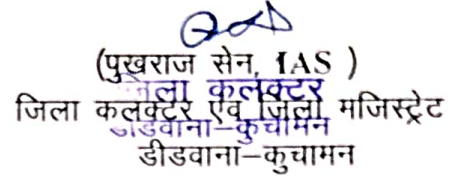 (पुखराज सेन, IAS )
जिला कलक्टर
जिला कलक्टर एवं जिला मजिस्ट्रेट
डीडवाना–कुचामन
डीडवाना–कुचामन